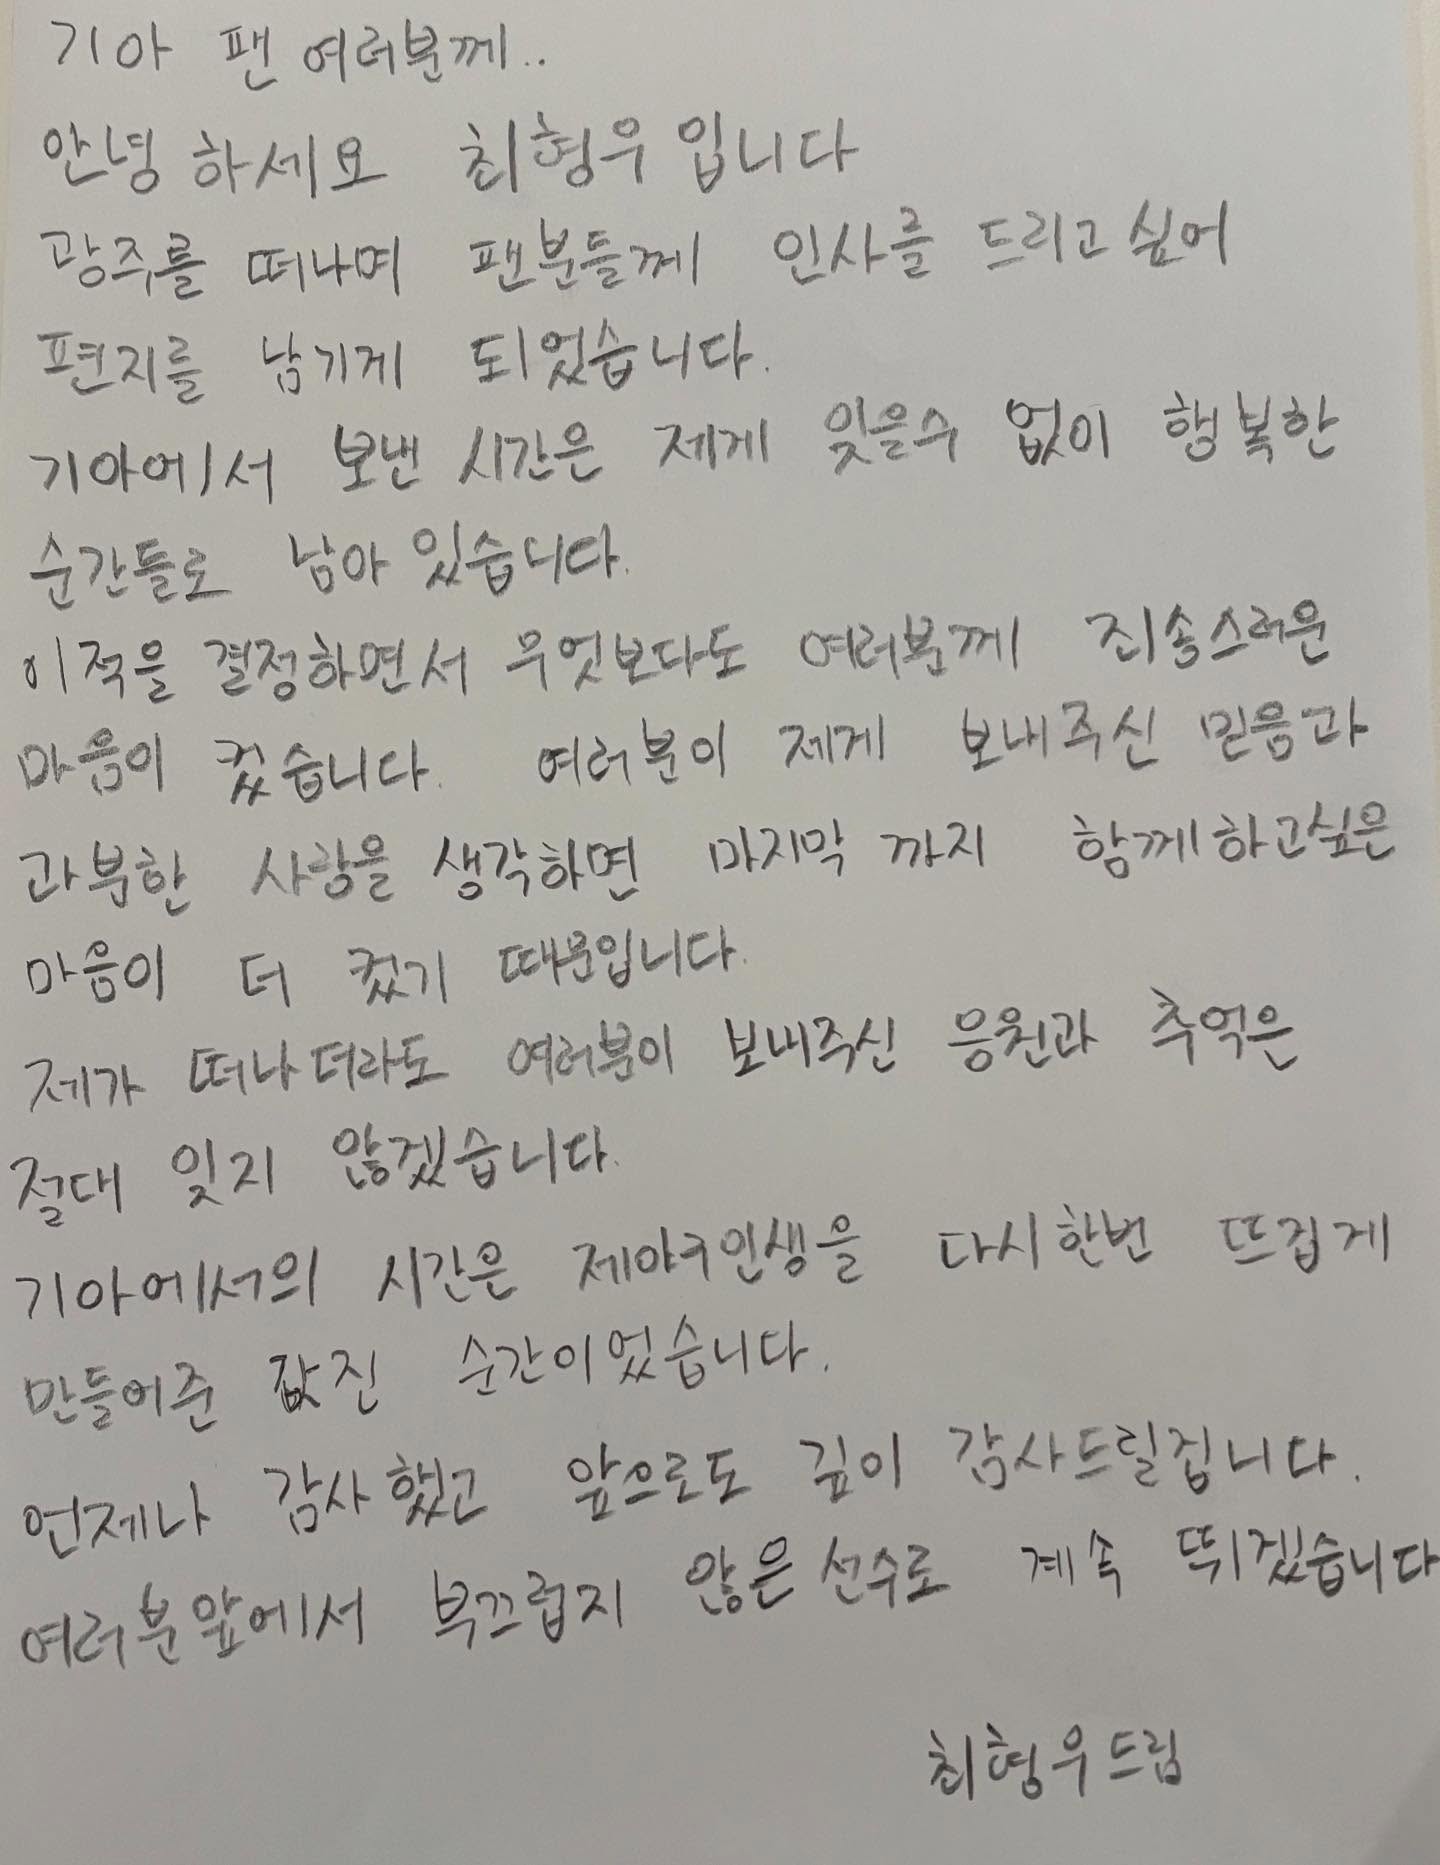 기아 팬 여러분께..
안녕하세요 최형우입니다
광주를 떠나며 팬분들께 인사를 드리고싶어
편지를 남기게 되었습니다.
기아에서 보낸 시간은 제게 잊을수 없이 행복한
순간들로 남아 있습니다.
이적을 결정하면서 무엇보다도 여러분께 죄송스러운
마음이 컸습니다. 여러분이 제게 보내주신 믿음과
과분한 사랑을 생각하면 마지막 까지 함께하고싶은
마음이 더 컸기 때문입니다.
제가 떠나더라도 여러분이 보내주신 응원과 추억은
절대 잊지 않겠습니다.
기아에서의 시간은 제야구인생을 다시한번 뜨겁게
만들어준 값진 순간이었습니다.
언제나 감사했고 앞으로도 깊이 감사드릴겁니다.
여러분앞에서 부끄럽지 않은 선수로 계속 뛰겠습니다
최형우드림